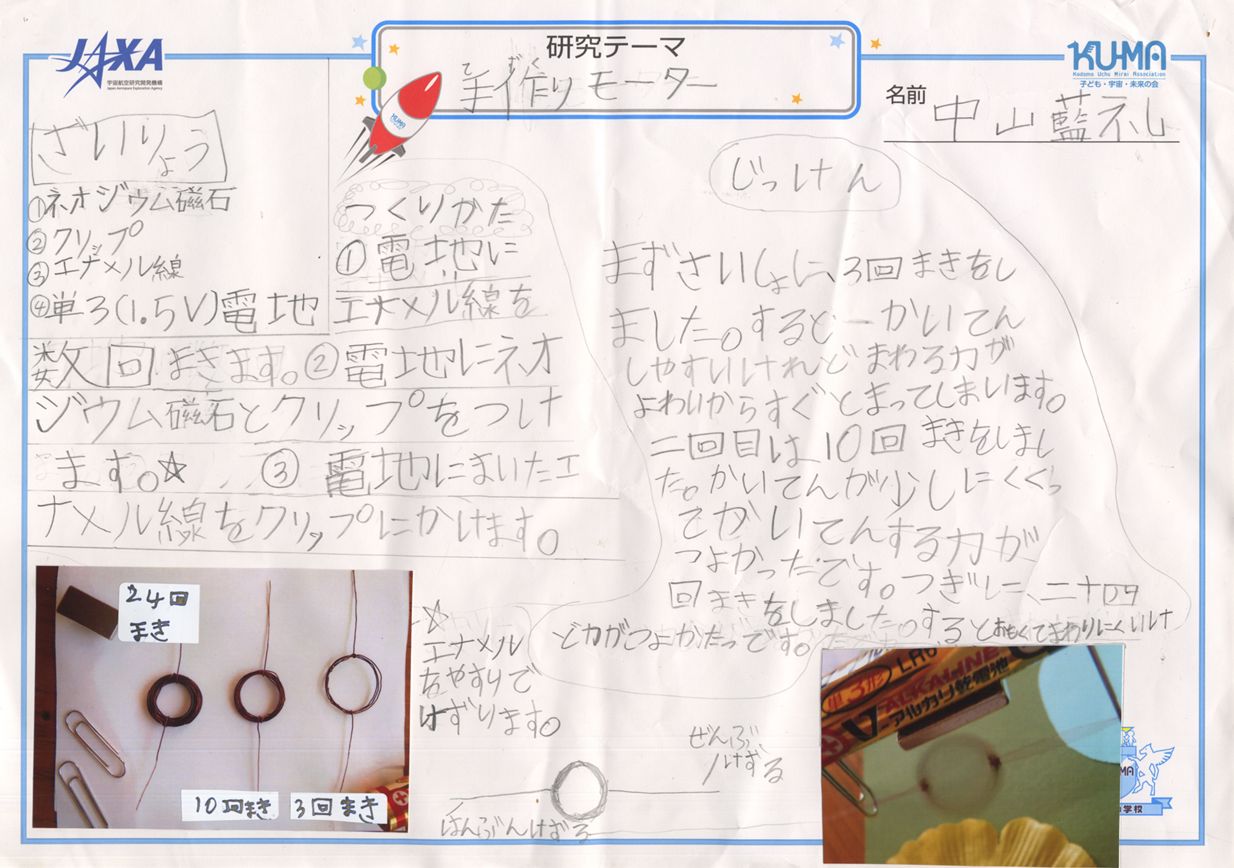 JAXA
宇宙航空研究開発機構
Japan Aerospace Exploration Agency
研究テーマ
てづく
手作りモーター
KUMA
KU-MA
Kodomo Uchu Mirai Association
子ども・宇宙・未来の会
名前
中山藍礼
ざいりょう
①ネオジウム磁石
②クリップ
③エナメル線
④単3(1.5V)電地
つくりかた
①電地に
エナメル線を
数回まきます。②電地にネオ
ジウム磁石とクリップをつけ
ます。☆ ③電地にまいたエ
ナメル線をクリップにかけます。
じっけん
まずさいしょに、3回まきをし
ました。するとーかいてん
しやすいけれどまわる力が
よわいからすぐとまってしまいます。
二回目は10回まきをしまし
た。かいてんが少しにくくっ
てかいてんする力が
つよかったです。つぎに、二十四
回まきをしました。するとおもくてまわりにくいけ
ど力がつよかたっです。
24回
まき
10回まき
3回まき
☆
エナメル
をやすりで
けずります。
ぜんぶ
けずる
はんぶんけずる
単3形
LR6
ALKALINE
アルカリ乾電池
MA
学校